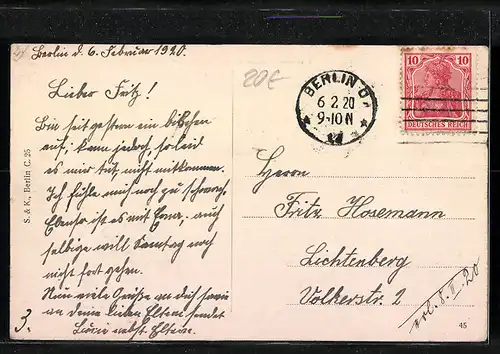 Berlin d. 6. Februar 1920.
20€
Lieber Fritz!
Bin seit gestern ein bißchen
auf, kann jedoch, so leid
es mir tut, nicht mitkommen.
Ich fühle mich noch zu schwach.
Ebenso ist es mit Erna, auch
selbige will Sonntag noch
nicht fort gehen.
Nun viele Grüße an dich sowie
an deine lieben Eltern sendet
nebst Eltern.
3.
S. & K., Berlin C. 25
BERLIN O
6 2 20
9-10 N
10 10
DEUTSCHES REICH
Herrn
Fritz Hosemann
Lichtenberg
Volkerstr. 2
erl. 8. II. 20
45